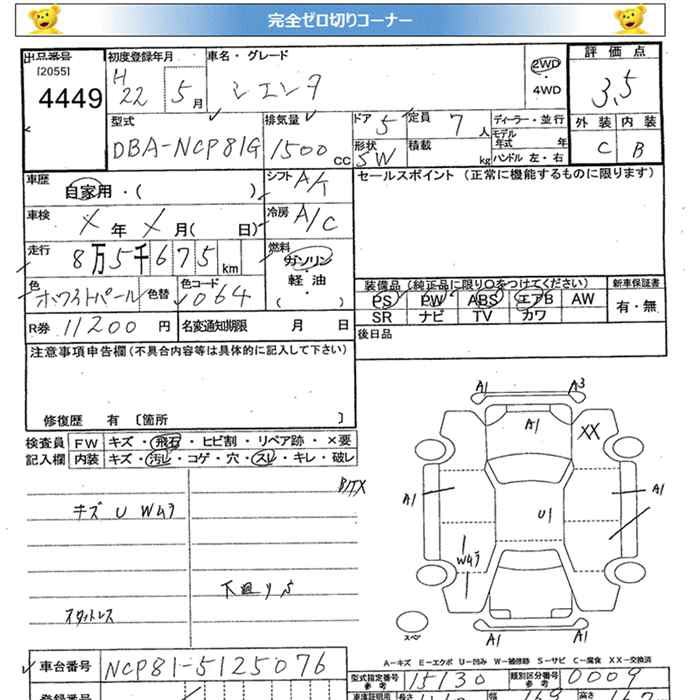 完全ゼロ切りコーナー
出品番号 [2055] 4449
初度登録年月 H 22 5月
車名・グレード シエンタ
2WD・4WD
評価点 3.5
外装 C 内装 B
型式 DBA-NCP81G
排気量 1500cc
ドア 5
形状 SW
定員 7人
積載 kg
ディーラー・並行
モデル年式 年
ハンドル 左・右
車歴 自家用・( )
シフト A/T
車検 X年X月( 日)
冷房 A/C
走行 8万5千675km
燃料 ガソリン・軽油・( )
色 ホワイトパール 色替
色コード 064
R券 11200円
名変通知期限 月 日
セールスポイント (正常に機能するものに限ります)
装備品(純正品に限り○をつけてください)
PS PW ABS エアB AW
SR ナビ TV カワ
新車保証書 有・無
後日品
注意事項申告欄(不具合内容等は具体的に記入して下さい)
修復歴 有 〔箇所 〕
検査員記入欄
FW キズ・飛石・ヒビ割・リペア跡・×要
内装 キズ・汚レ・コゲ・穴・スレ・キレ・破レ
キズ U Wムラ
下廻りS
スタットレス
A1 A3
A1
XX
A1 A1
U1
Wムラ
スペア
A1 A1
A-キズ E-エクボ U-凹み W-補修跡 S-サビ C-腐食 XX-交換済
車台番号 NCP81-5125076
型式指定番号 参考 15130
類別区分番号 参考 0009